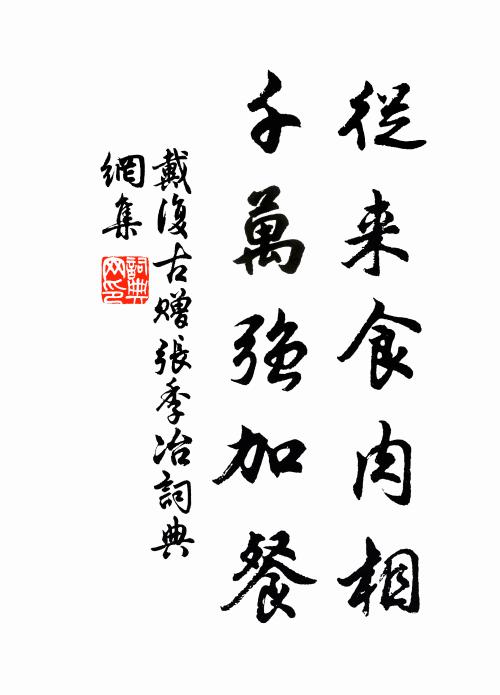 從来食肉相
千萬強加餐
戴復古赠張季冶詞典
網集
詞典
网印